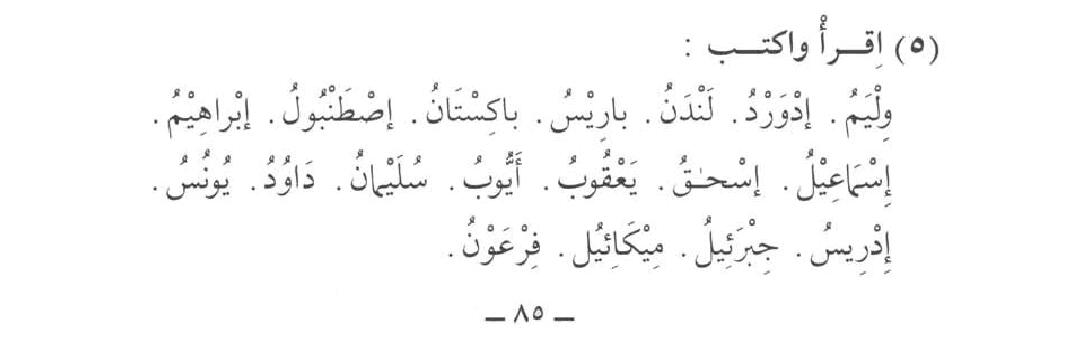 (٥) اِقـــرأْ واكتـــب :
وِلْيَمُ. إدْوَرْدُ. لَنْدَنُ. بارِيْسُ. باكِسْتَانُ. إصْطَنْبُولُ. إبْراهِيْمُ.
إِسْمَاعِيْلُ. إسْحـٰقُ. يَعْقُوبُ. أَيُّوبُ. سُلَيْمانُ. دَاوُدُ. يُونُسُ.
إِدْرِيسُ. جِبْرَئِيلُ. مِيْكَائِيُل. فِرْعَوْنُ.
– ٨٥ –